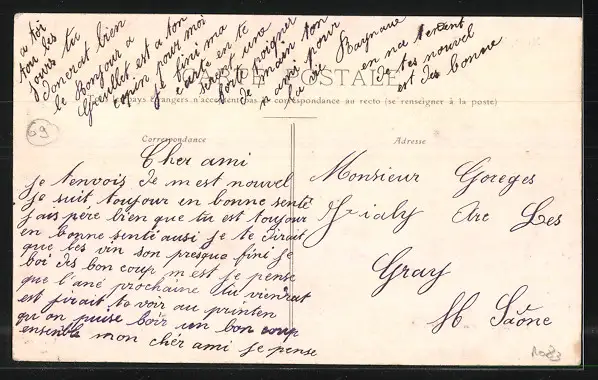 CARTE POSTALE
Tous les pays étrangers n'acceptent pas la correspondance au recto (se renseigner à la poste)
Correspondance
Cher ami
je t'envois de m est nouvel
je suit toujour en bonne senté
j'ais père bien que tu est toujour
en bonne senté aussi je te dirait
que les vin son presque fini je
boi des bon coup m est je pense
que l'ané prochaine tu viendrat
est j'irait te voir au printen
qu'on puise boir un bon coup
ensemble mon cher ami je pense
a toi
tou les
jours tu
donerat bien
le bonjour a
est a ton
copin pour moi
je fini ma
carte en te
serent une
forte poigner
de main ton
ami pour
la vi Raynaud
en na tendent
de tes nouvel
est des bonne
Adresse
Monsieur Goreges
Vialy Arc Les
Gray
H Saône
69